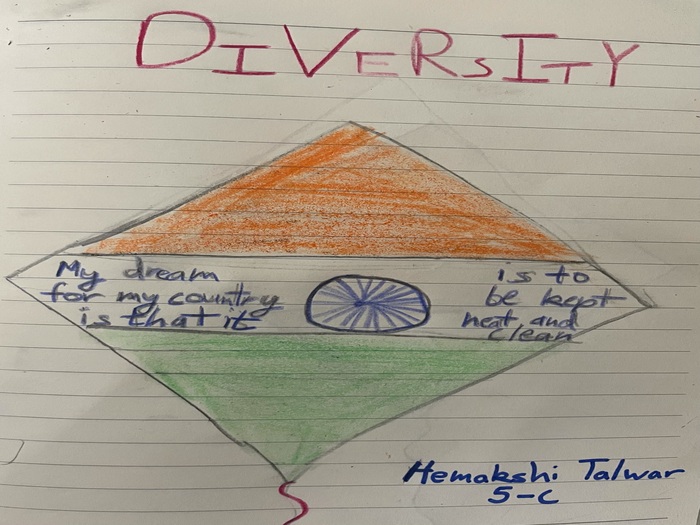 DIVERSITY
My dream
for my country
is that it
is to
be kept
neat and
clean
Hemakshi Talwar
5-C